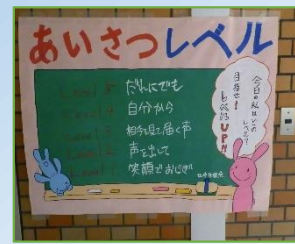 あいさつレベル
Level 5 だれにでも
Level 4 自分から
Level 3 相手に届く声
Level 2 声を出して
Level 1 笑顔でおじぎ
今日の私はどの
レベル?
目指せ!
レベルUP!!